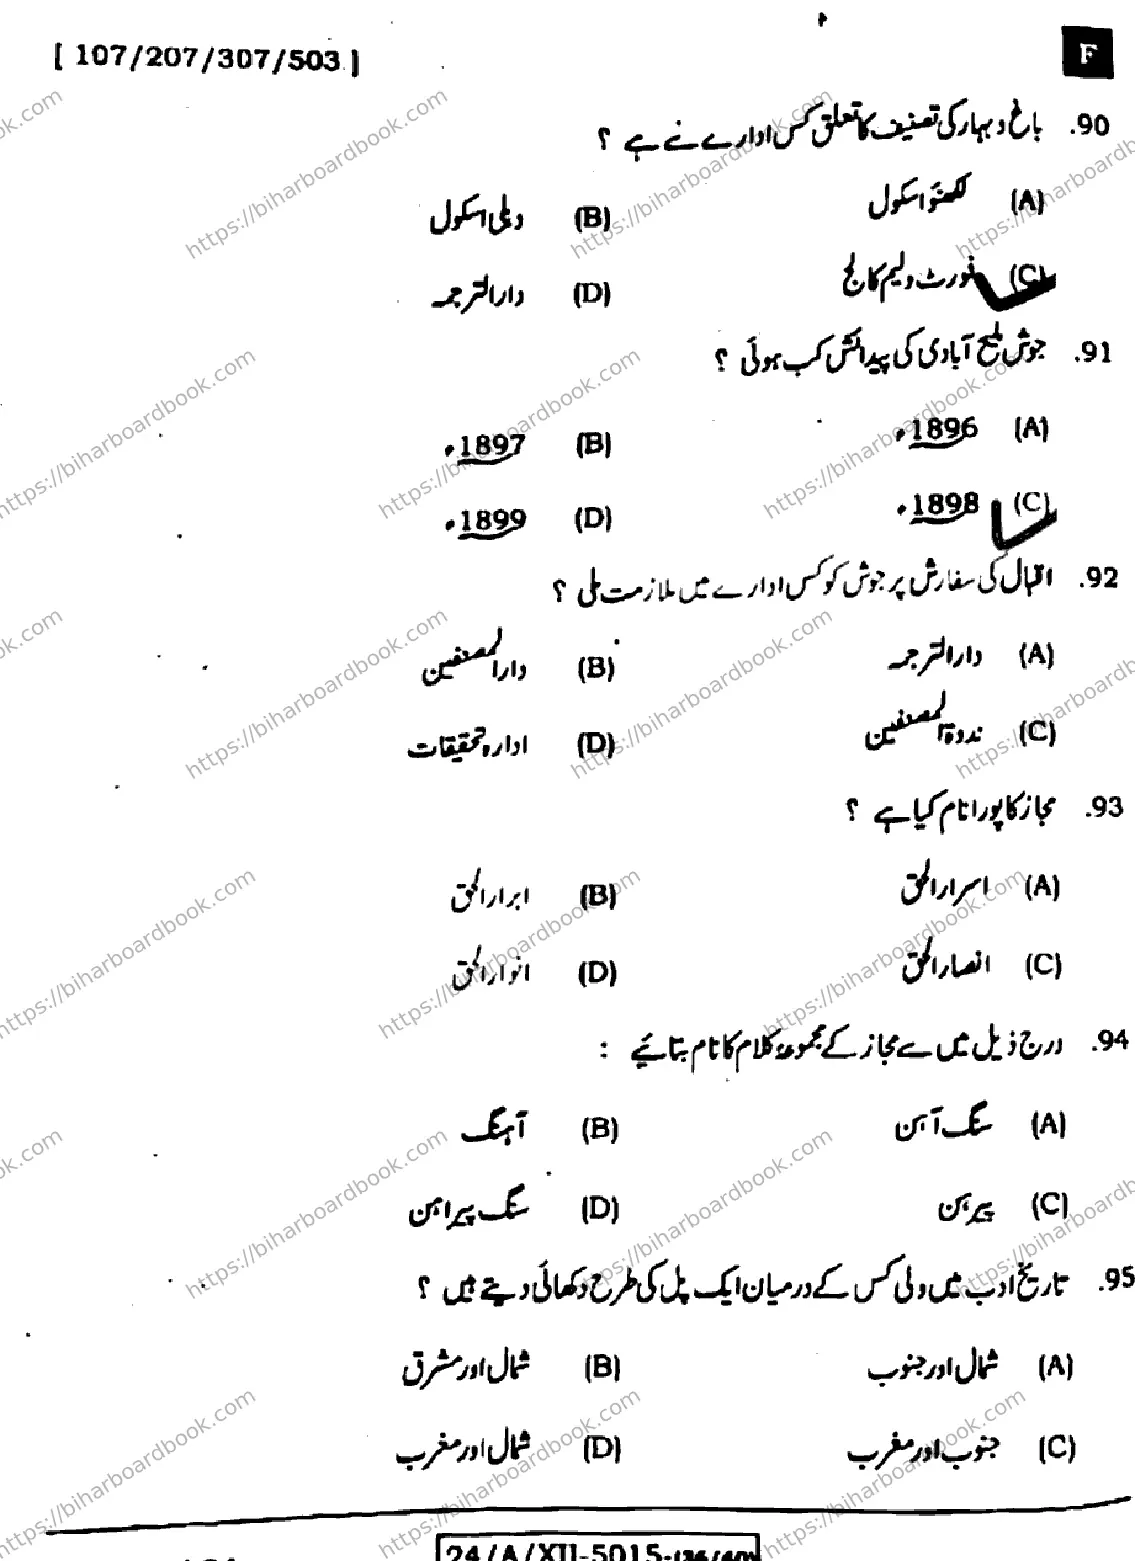 [ 107/207/307/503 ]
F
90. باغ و بہار کی تصنیف کا تعلق کس ادارے نے ہے ؟
(A) لکھنؤ اسکول (B) دہلی اسکول
(C) فورٹ ولیم کالج (D) دارالترجمہ
91. جوش ملیح آبادی کی پیدائش کب ہوئی ؟
(A) 1896ء (B) 1897ء
(C) 1898ء (D) 1899ء
92. اقبال کی سفارش پر جوش کو کس ادارے میں ملازمت ملی ؟
(A) دارالترجمہ (B) دارالمصنفین
(C) ندوۃ المصنفین (D) ادارہ تحقیقات
93. مجاز کا پورا نام کیا ہے ؟
(A) اسرارالحق (B) ابرارالحق
(C) انصارالحق (D) انوارالحق
94. درج ذیل میں سے مجاز کے مجموعۂ کلام کا نام بتائیے :
(A) سنگ آہن (B) آہنگ
(C) پیرہن (D) سنگ پیراہن
95. تاریخ ادب میں ولی کس کے درمیان ایک پل کی طرح دکھائی دیتے ہیں ؟
(A) شمال اور جنوب (B) شمال اور مشرق
(C) جنوب اور مغرب (D) شمال اور مغرب
24/A/XII-5015-(36/40)
https://biharboardbook.com